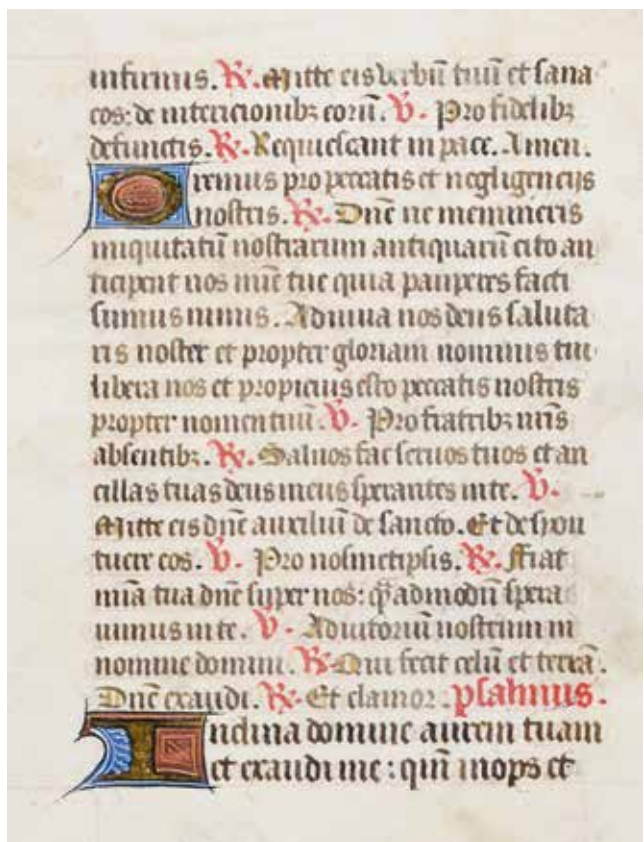 infirmis. ℟. Mitte eis verbū tuū et sana
eos: de interitionibꝫ eorū. ℣. Pro fidelibꝫ
defunctis. ℟. Requiescant in pace. Amen.
Oremus pro peccatis et negligencijs
nostris. ℟. Dn̄e ne memineris
iniquitatū nostrarum antiquarū cito an
ticipent nos mīe tue quia pauperes facti
sumus nimis. Adiuua nos deus saluta
ris noster et propter gloriam nominis tui
libera nos et propicius esto peccatis nostris
propter nomen tuū. ℣. Pro fratribꝫ nr̄is
absentibꝫ. ℟. Saluos fac seruos tuos et an
cillas tuas deus meus sperantes in te. ℣.
Mitte eis dn̄e auxiliū de sancto. Et de syon
tuere eos. ℣. Pro nosmetipsis. ℟. Fiat
mīa tua dn̄e super nos: q̄ admodū spera
uimus in te. ℣. Adiutoriū nostrum in
nomine domini. ℟. Qui fecit celū et terrā.
Dn̄e exaudi. ℟. Et clamor. psalmus.
Inclina domine aurem tuam
et exaudi me: qm̄ inops et